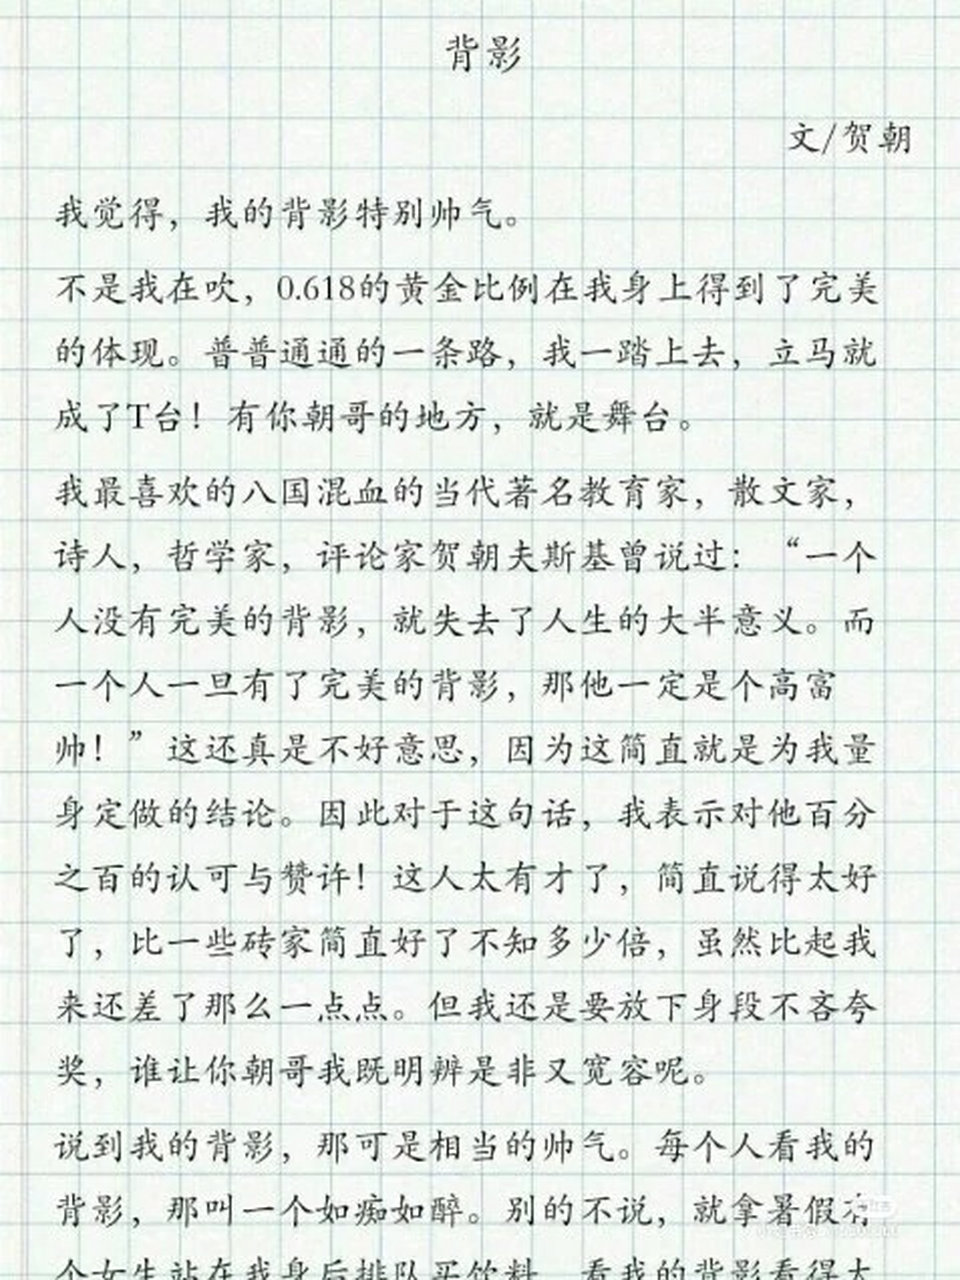 背影
文/贺朝
我觉得，我的背影特别帅气。
不是我在吹，0.618的黄金比例在我身上得到了完美
的体现。普普通通的一条路，我一踏上去，立马就
成了T台！有你朝哥的地方，就是舞台。
我最喜欢的八国混血的当代著名教育家，散文家，
诗人，哲学家，评论家贺朝夫斯基曾说过：“一个
人没有完美的背影，就失去了人生的大半意义。而
一个人一旦有了完美的背影，那他一定是个高富
帅！”这还真是不好意思，因为这简直就是为我量
身定做的结论。因此对于这句话，我表示对他百分
之百的认可与赞许！这人太有才了，简直说得太好
了，比一些砖家简直好了不知多少倍，虽然比起我
来还差了那么一点点。但我还是要放下身段不吝夸
奖，谁让你朝哥我既明辨是非又宽容呢。
说到我的背影，那可是相当的帅气。每个人看我的
背影，那叫一个如痴如醉。别的不说，就拿暑假有
个女生站在我身后排队买饮料，看我的背影看得太